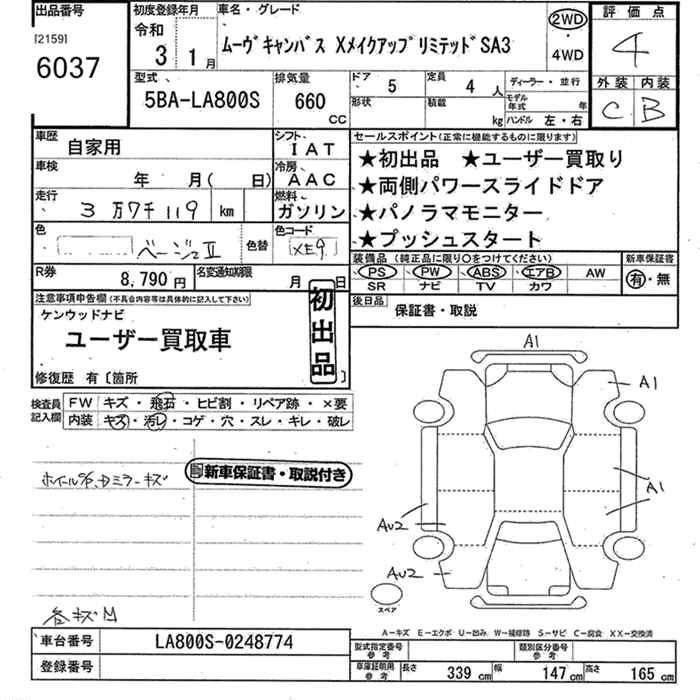 出品番号
[2159]
6037
初度登録年月
令和
3 1月
車名・グレード
ムーヴキャンバス XメイクアップリミテッドSA3
2WD
・
4WD
評価点
4
外装 内装
C B
型式
5BA-LA800S
排気量
660
CC
ドア
5
定員
4 人
形状
積載
kg
ディーラー・並行
モデル年式 年
ハンドル 左・右
車歴
自家用
シフト
IAT
車検
年 月( 日)
冷房
AAC
走行
3万7千119 km
燃料
ガソリン
色
ベージュII
色替
色コード
XE9
R券
8,790円
名変通知期限
月 日
セールスポイント(正常に機能するものに限ります)
★初出品 ★ユーザー買取り
★両側パワースライドドア
★パノラマモニター
★プッシュスタート
装備品 (純正品に限り○をつけてください)
PS PW ABS エアB AW
SR ナビ TV カワ
新車保証書
有・無
後日品
保証書・取説
注意事項申告欄(不具合内容等は具体的に記入して下さい)
ケンウッドナビ
ユーザー買取車
修復歴 有〔箇所 〕
初出品
検査員記入欄
FW キズ・飛石・ヒビ割・リペア跡・×要
内装 キズ・汚レ・コゲ・穴・スレ・キレ・破レ
新車保証書・取説付き
ミラーキズ
各キズ
A1
A1
A1
AU2
AU2
スペア
A-キズ E-エクボ U-凹み W-補修跡 S-サビ C-腐食 XX-交換済
車台番号
LA800S-0248774
登録番号
型式指定番号
参考
類別区分番号
参考
車庫証明用
参考
長さ 339 cm 幅 147 cm 高さ 165 cm